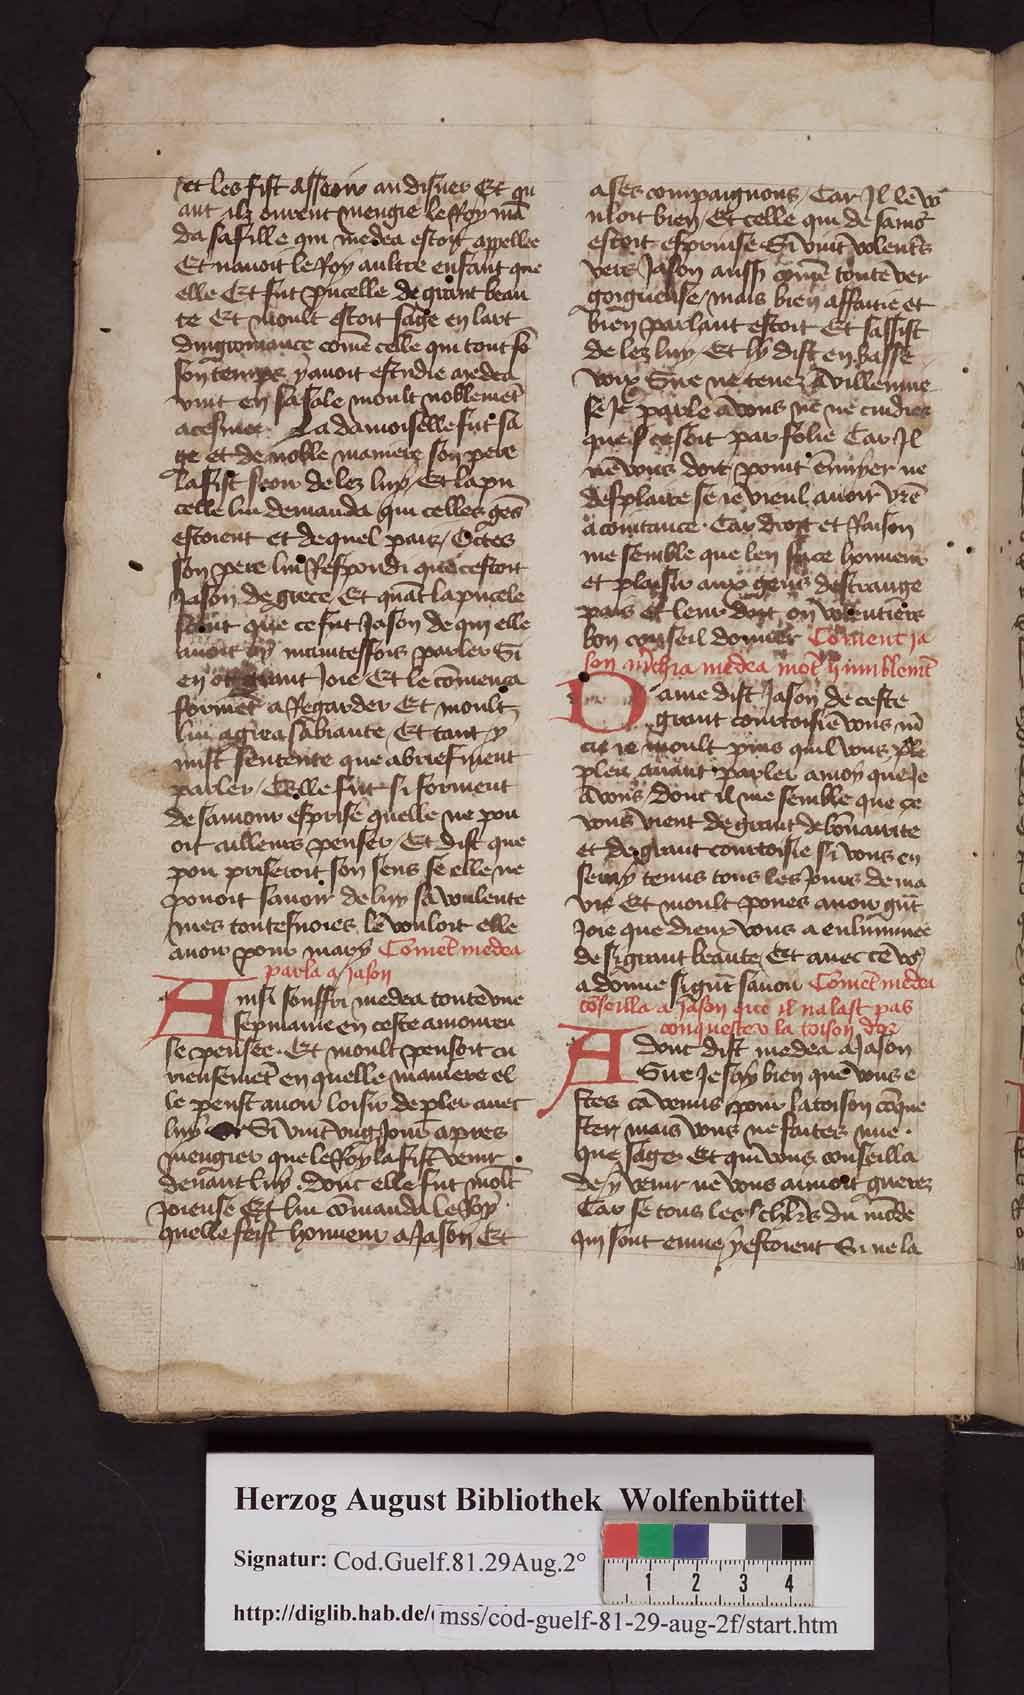 et les fist asseoir au disner Et qu
ant ilz eurent mengie le Roy mā
da sa fille qui medea estoit appellee
Et navoit le Roy aultre enfant que
elle Et fut pucelle de grant beau
te Et moult estoit sage en lart
dingromance cōme celle qui tout sō
son temps y avoit estudie medea
vint en la sale moult noblemēt
acesmee. La damoiselle fut sa
ge et de noble maniere son pere
la fist seoir de lez luy / Et la pu
celle lui demanda qui celles gēs
estoient et de quel pais / Octes
son pere lui Respondi que cestoit
Jason de grece / Et quāt la pucele
que ce fut Jason de qui elle
avoit oy maintesfois parler Si
en ot grant joie / Et le cōmença
formēt a Regarder Et moult
lui agrea sa biaute / Et tant y
mist sentente que a brief ment
parler / Elle fut si forment
de samour esprise quelle ne pou
oit ailleurs penser / Et dist que
pou priseroit son sens se elle ne
pouoit savoir de luy sa voulente
mes toutesvoies le vouloit elle
avoir pour mary Comēt medea
parla a Jason
Ainsi souffri medea toute une
sepmaine en ceste amoureu
se pensee. Et moult pensoit cu
rieusemēt en quelle maniere el
le peust avoir loisir de pler avec
luy Si vint ung jour apres
mengier que le Roy la fist venir
devant luy. Donc elle fut molt
joieuse Et lui cōmanda le Roy
quelle feist honneur a Jason Et
a ses compaignons / Car Il le vo
uloit bien / Et celle qui de samo
estoit esprinse Si vint volentrs
vers Jason aussi cōme toute ver
gongneuse / mais bien affaitie et
bien parlant estoit Et sassist
de lez luy Et ly dist en basse
voix Sire ne tenez a villennie
se Je parle a vous ne ne cuidies
que ce soit par folie Car Il
ne vous doit point ennuyer ne
desplaire se ie vieul avoir vre
acointance. Car droit et Raison
me semble que len face honneur
et plaisir aux gens destrange
pais et leur doit on volentiers
bon conseil donner Coment Ja
son mercia medea mot humblemēt
Dame dist Jason de ceste
grant courtoisie vous m̄
cie ie moult puis quil vous ple
pleu avant parler a moy que Je
a vous / Donc il me semble que ce
vous vient de grant debōnairete
et de grant courtoisie si vous en
seray tenus tous les Jours de ma
vie Et moult poues avoir grāt
Joie que dieux vous a enluminee
de si grant beaute / Et avec ce vo
a donne si grāt savoir Comēt medea
cōseilla a Jason que il nalast pas
conquester la toison dor
Adonc dist medea a Jason
Sire Je say bien que vous e
stes ca venus pour la toison cōque
ster mais vous ne faites mie
que sage. Et qui vous conseilla
de y venir ne vous aimoit guerez
Car se tous les chlrs du mōde
qui sont en vie y estoient Si ne la
Herzog August Bibliothek Wolfenbüttel
Signatur: Cod.Guelf.81.29Aug.2°
1 2 3 4
http://diglib.hab.de/ mss/cod-guelf-81-29-aug-2f/start.htm